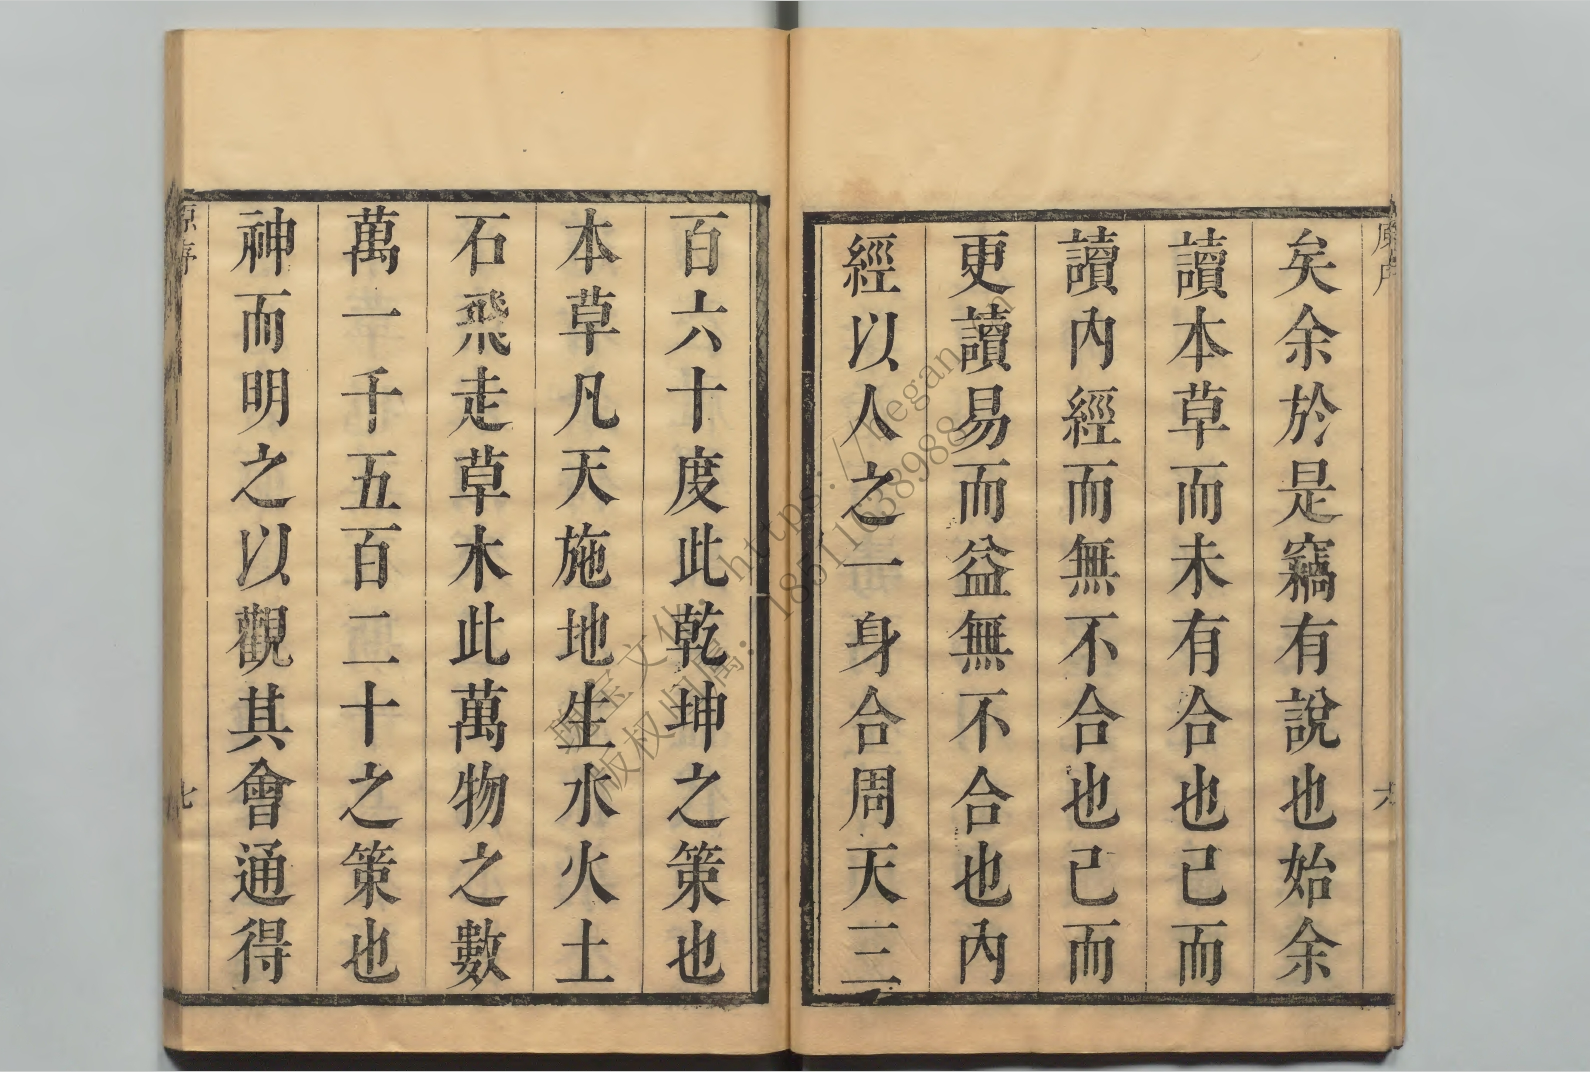 原序
六
矣余於是竊有說也始余
讀本草而未有合也已而
讀內經而無不合也已而
更讀易而益無不合也內
經以人之一身合周天三
百六十度此乾坤之策也
本草凡天施地生水火土
石飛走草木此萬物之數
萬一千五百二十之策也
神而明之以觀其會通得
原序
七
https://hegan
版权归属：18511038988